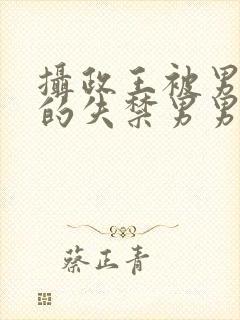 攝政王被男
的失禁男男
蔡正青